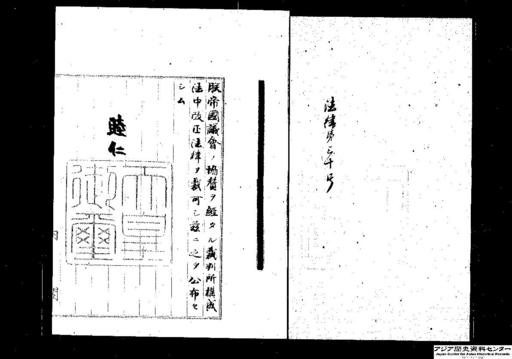 法律第三十号
朕帝國議會ノ協賛ヲ經タル裁判所構成
法中改正法律ヲ裁可シ茲ニ之ヲ公布セ
シム
睦仁
天皇御璽
アジア歴史資料センター
Japan Center for Asian Historical Records